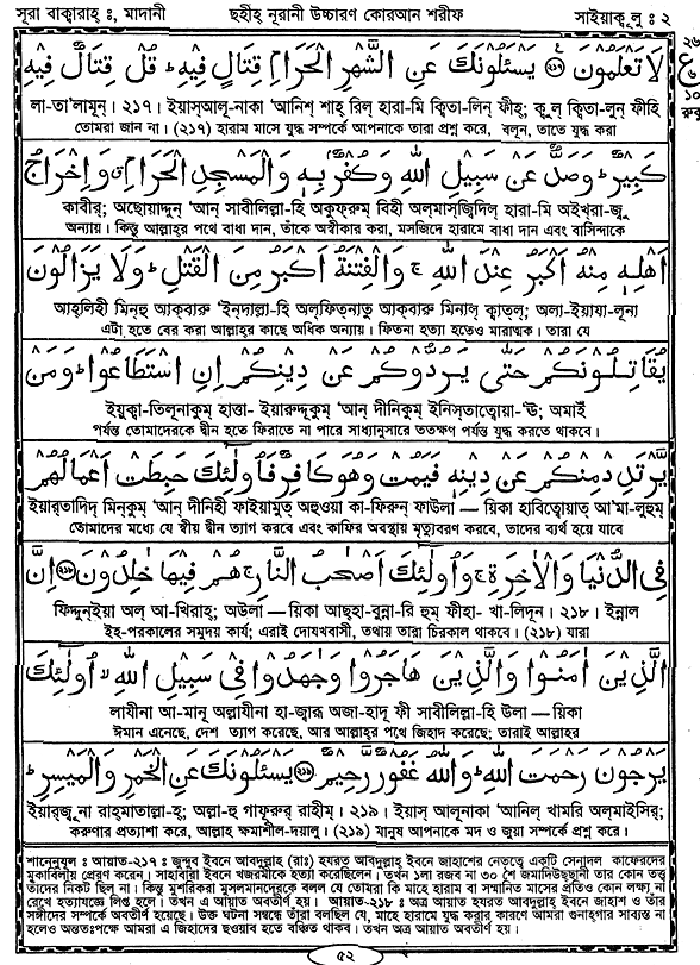 সূরা বাক্বারাহ্ ঃ, মাদানী ছহীহ্ নূরানী উচ্চারণ কোরআন শরীফ সাইয়াক্বূ লু ঃ ২
لَا تَعْلَمُونَ ۝٢١٦ يَسْئَلُونَكَ عَنِ الشَّهْرِ الْحَرَامِ قِتَالٍ فِيهِ ط قُلْ قِتَالٌ فِيهِ
২৬
ع
১০
রুকু
লা-তা'লামূন্। ২১৭। ইয়াস্আলূ-নাকা 'আনিশ্ শাহ্ রিল্ হারা-মি ক্বিতা-লিন্ ফীহ্; ক্বুল্ ক্বিতা-লুন্ ফীহি
তোমরা জান না। (২১৭) হারাম মাসে যুদ্ধ সম্পর্কে আপনাকে তারা প্রশ্ন করে, বলুন, তাতে যুদ্ধ করা
كَبِيرٌ ط وَصَدٌّ عَنْ سَبِيلِ اللهِ وَكُفْرٌ بِهٖ وَالْمَسْجِدِ الْحَرَامِ ق وَإِخْرَاجُ
কাবীর্; অছোয়াদ্দুন্ 'আন্ সাবীলিল্লা-হি অকুফ্রুম্ বিহী অল্মাস্জ্বিদিল্ হারা-মি অইখ্রা-জ্বু
অন্যায়। কিন্তু আল্লাহ্র পথে বাধা দান, তাঁকে অস্বীকার করা, মসজিদে হারামে বাধা দান এবং বাসিন্দাকে
أَهْلِهٖ مِنْهُ أَكْبَرُ عِنْدَ اللهِ ج وَالْفِتْنَةُ أَكْبَرُ مِنَ الْقَتْلِ ط وَلَا يَزَالُونَ
আহ্লিহী মিন্হু আক্বারু 'ইন্দাল্লা-হি অল্ফিত্নাতু আক্বারু মিনাল্ ক্বাত্ল্; অলা-ইয়াযা-লূনা
এটা হতে বের করা আল্লাহর কাছে অধিক অন্যায়। ফিতনা হত্যা হতেও মারাত্মক। তারা যে
يُقَاتِلُونَكُمْ حَتَّى يَرُدُّوكُمْ عَنْ دِينِكُمْ إِنِ اسْتَطَاعُوا ط وَمَنْ
ইয়ুক্বা-তিলূনাকুম্ হাত্তা- ইয়ারুদ্দূকুম্ 'আন্ দীনিকুম্ ইনিস্তাত্বোয়া-'ঊ; অমাইঁ
পর্যন্ত তোমাদেরকে দ্বীন হতে ফিরাতে না পারে সাধ্যানুসারে ততক্ষণ পর্যন্ত যুদ্ধ করতে থাকবে।
يَّرْتَدِدْ مِنْكُمْ عَنْ دِينِهٖ فَيَمُتْ وَهُوَ كَافِرٌ فَأُولٰئِكَ حَبِطَتْ أَعْمَالُهُمْ
ইয়ার্তাদিদ্ মিন্কুম্ 'আন্ দীনিহী ফাইয়ামুত্ অহুওয়া কা-ফিরুন্ ফাউলা — য়িকা হাবিত্বোয়াত্ আ'মা-লুহুম্
তোমাদের মধ্যে যে স্বীয় দ্বীন ত্যাগ করবে এবং কাফির অবস্থায় মৃত্যুবরণ করবে, তাদের ব্যর্থ হয়ে যাবে
فِي الدُّنْيَا وَالْآخِرَةِ ج وَأُولٰئِكَ أَصْحٰبُ النَّارِ ج هُمْ فِيهَا خٰلِدُونَ ۝٢١٧ إِنَّ
ফিদ্দুন্ইয়া অল্ আ-খিরাহ্; অউলা — য়িকা আছ্হা-বুন্না-রি হুম্ ফীহা- খা-লিদূন। ২১৮। ইন্নাল
ইহ-পরকালের সমুদয় কার্য; এরাই দোযখবাসী, তথায় তারা চিরকাল থাকবে। (২১৮) যারা
الَّذِينَ آمَنُوا وَالَّذِينَ هَاجَرُوا وَجٰهَدُوا فِي سَبِيلِ اللهِ لا أُولٰئِكَ
লাযীনা আ-মানূ অল্লাযীনা হা-জ্বারূ অজা-হাদূ ফী সাবীলিল্লা-হি উলা — য়িকা
ঈমান এনেছে, দেশ ত্যাগ করেছে, আর আল্লাহর পথে জিহাদ করেছে; তারাই আল্লাহর
يَرْجُونَ رَحْمَتَ اللهِ ط وَاللهُ غَفُورٌ رَحِيمٌ ۝٢١٨ يَسْئَلُونَكَ عَنِ الْخَمْرِ وَالْمَيْسِرِ ط
ইয়ার্জ্বূ না রাহ্মাতাল্লা-হ্; অল্লা-হু গাফূরুর্ রাহীম্। ২১৯। ইয়াস্ আলূনাকা 'আনিল্ খামরি অল্মাইসির্;
করুণার প্রত্যাশা করে, আল্লাহ ক্ষমাশীল-দয়ালু। (২১৯) মানুষ আপনাকে মদ ও জুয়া সম্পর্কে প্রশ্ন করে।
শানেনুযুল ঃ আয়াত-২১৭ ঃ জুন্দুব ইবনে আবদুল্লাহ (রাঃ) হযরত আবদুল্লাহ ইবনে জাহাশের নেতৃত্বে একটি সেনাদল কাফেরদের
মুকাবিলায় প্রেরণ করেন। সাহাবীরা ইবনে খজরমীকে হত্যা করেছিলেন। তখন ১লা রজব না ৩০ শে জমাদিউছছানী তার কোন তত্ত্ব
তাদের নিকট ছিল না। কিন্তু মুশরিকরা মুসলমানদেরকে বলল যে তোমরা কি মাহে হারাম বা সম্মানিত মাসের প্রতিও কোন লক্ষ্য না
রেখে হত্যাযজ্ঞে লিপ্ত হলে। তখন এ আয়াত অবতীর্ণ হয়। আয়াত-২১৮ ঃ অত্র আয়াত হযরত আবদুল্লাহ ইবনে জাহাশ ও তাঁর
সঙ্গীদের সম্পর্কে অবতীর্ণ হয়েছে। উক্ত ঘটনা সম্বন্ধে তাঁরা বলছিল যে, মাহে হারামে যুদ্ধ করার কারণে আমরা গুনাহ্গার সাব্যস্ত না
হলেও অন্ততঃপক্ষে আমরা এ জিহাদের ছওয়াব হতে বঞ্চিত থাকব। তখন অত্র আয়াত অবতীর্ণ হয়।
৫২